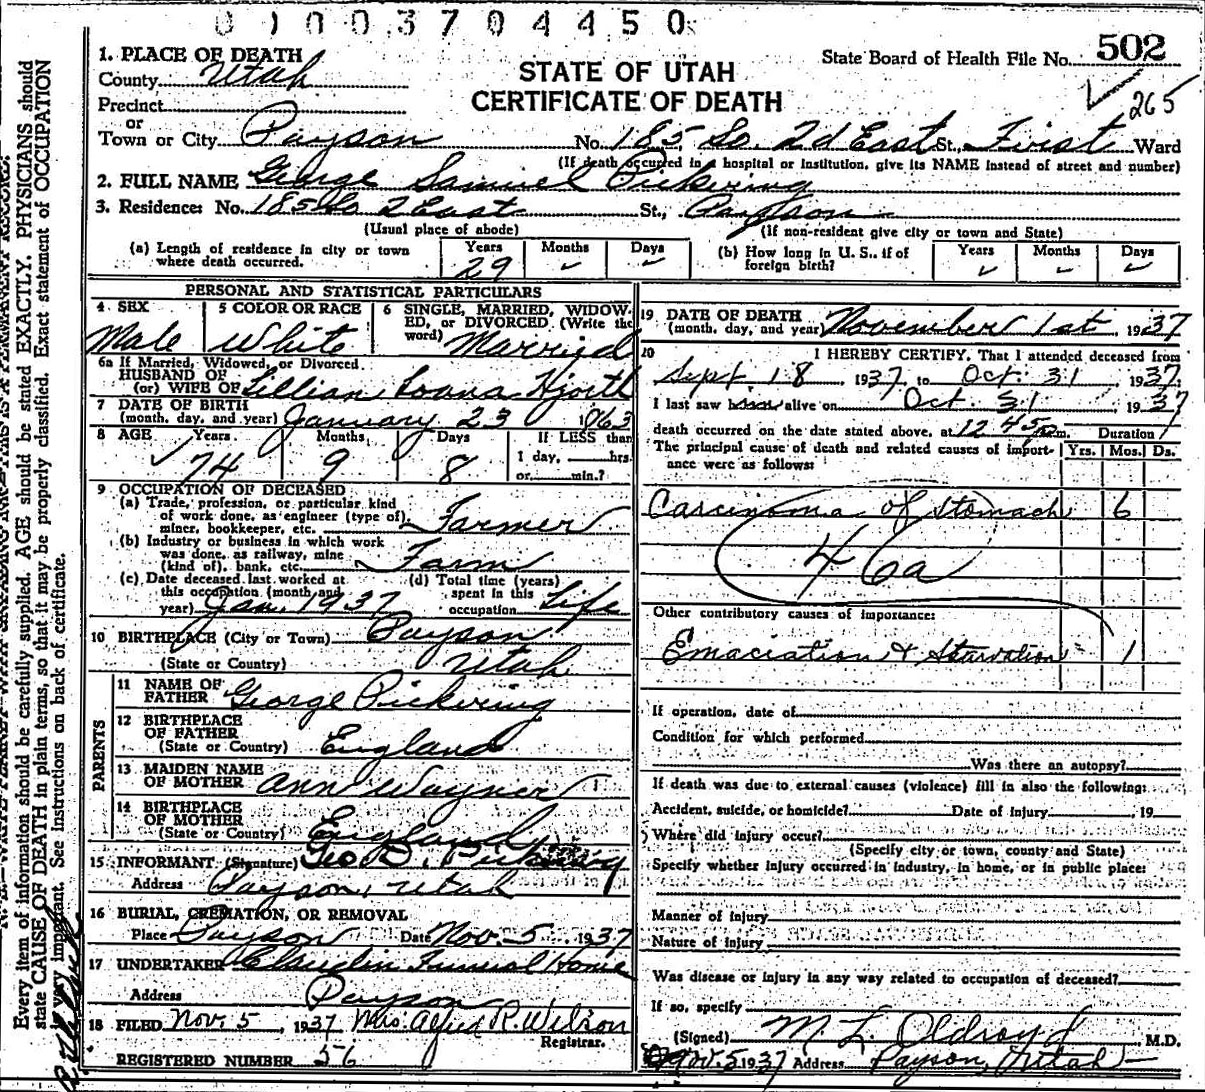 0 1 0 0 3 7 0 4 4 5 0
1. PLACE OF DEATH
County Utah
Precinct
or
Town or City Payson
State Board of Health File No. 502
265
STATE OF UTAH
CERTIFICATE OF DEATH
No. 185 So. 2d East St., First Ward
(If death occurred in a hospital or institution, give its NAME instead of street and number)
2. FULL NAME George Samuel Pickering
3. Residence: No. 185 So 2 East St., Payson
(Usual place of abode) (If non-resident give city or town and State)
(a) Length of residence in city or town where death occurred. Years 29 Months ✓ Days ✓
(b) How long in U. S., if of foreign birth? Years ✓ Months ✓ Days ✓
PERSONAL AND STATISTICAL PARTICULARS
4 SEX Male
5 COLOR OR RACE White
6 SINGLE, MARRIED, WIDOW-
ED, or DIVORCED (Write the
word) Married
6a If Married, Widowed, or Divorced.
HUSBAND OF
(or) WIFE OF Lillian Hjorth
7 DATE OF BIRTH
(month, day, and year) January 23 1863
8 AGE Years 74 Months 9 Days 8
If LESS than
1 day, hrs.
or min.?
9 OCCUPATION OF DECEASED
(a) Trade, profession, or particular kind
of work done, as engineer (type of),
miner, bookkeeper, etc. Farmer
(b) Industry or business in which work
was done, as railway, mine
(kind of), bank, etc. Farm
(c) Date deceased last worked at
this occupation (month and
year) Jan. 1937
(d) Total time (years)
spent in this
occupation Life
10 BIRTHPLACE (City or Town) Payson
(State or Country) Utah
PARENTS
11 NAME OF
FATHER George Pickering
12 BIRTHPLACE
OF FATHER
(State or Country) England
13 MAIDEN NAME
OF MOTHER Ann Wayner
14 BIRTHPLACE
OF MOTHER
(State or Country) England
15 INFORMANT (Signature) Geo D. Pickering
Address Payson, Utah
16 BURIAL, CREMATION, OR REMOVAL
Place Payson Date Nov. 5 1937
17 UNDERTAKER Claudin Funeral Home
Address Payson
18 FILED Nov. 5, 1937 Mrs. Alfred R. Wilson
Registrar.
REGISTERED NUMBER 56
19 DATE OF DEATH
(month, day, and year) November 1st 1937
20 I HEREBY CERTIFY, That I attended deceased from
Sept. 18, 1937, to Oct. 31 1937.
I last saw alive on Oct. 31, 1937
death occurred on the date stated above, at 12 45 p.m. Duration
The principal cause of death and related causes of import-
ance were as follows: Yrs. Mos. Ds.
Carcinoma of Stomach 6
46a
Other contributory causes of importance:
Emaciation & Starvation 1
If operation, date of
Condition for which performed
Was there an autopsy?
If death was due to external causes (violence) fill in also the following:
Accident, suicide, or homicide? Date of injury, 19
Where did injury occur?
(Specify city or town, county and State)
Specify whether injury occurred in industry, in home, or in public place:
Manner of injury
Nature of injury
Was disease or injury in any way related to occupation of deceased?
If so, specify
(Signed) M. L. Oldroyd M.D.
Nov. 5 1937 Address Payson, Utah
Every item of information should be carefully supplied. AGE should be stated EXACTLY. PHYSICIANS should
state CAUSE OF DEATH in plain terms, so that it may be properly classified. Exact statement of OCCUPATION
is very important. See Instructions on back of certificate.